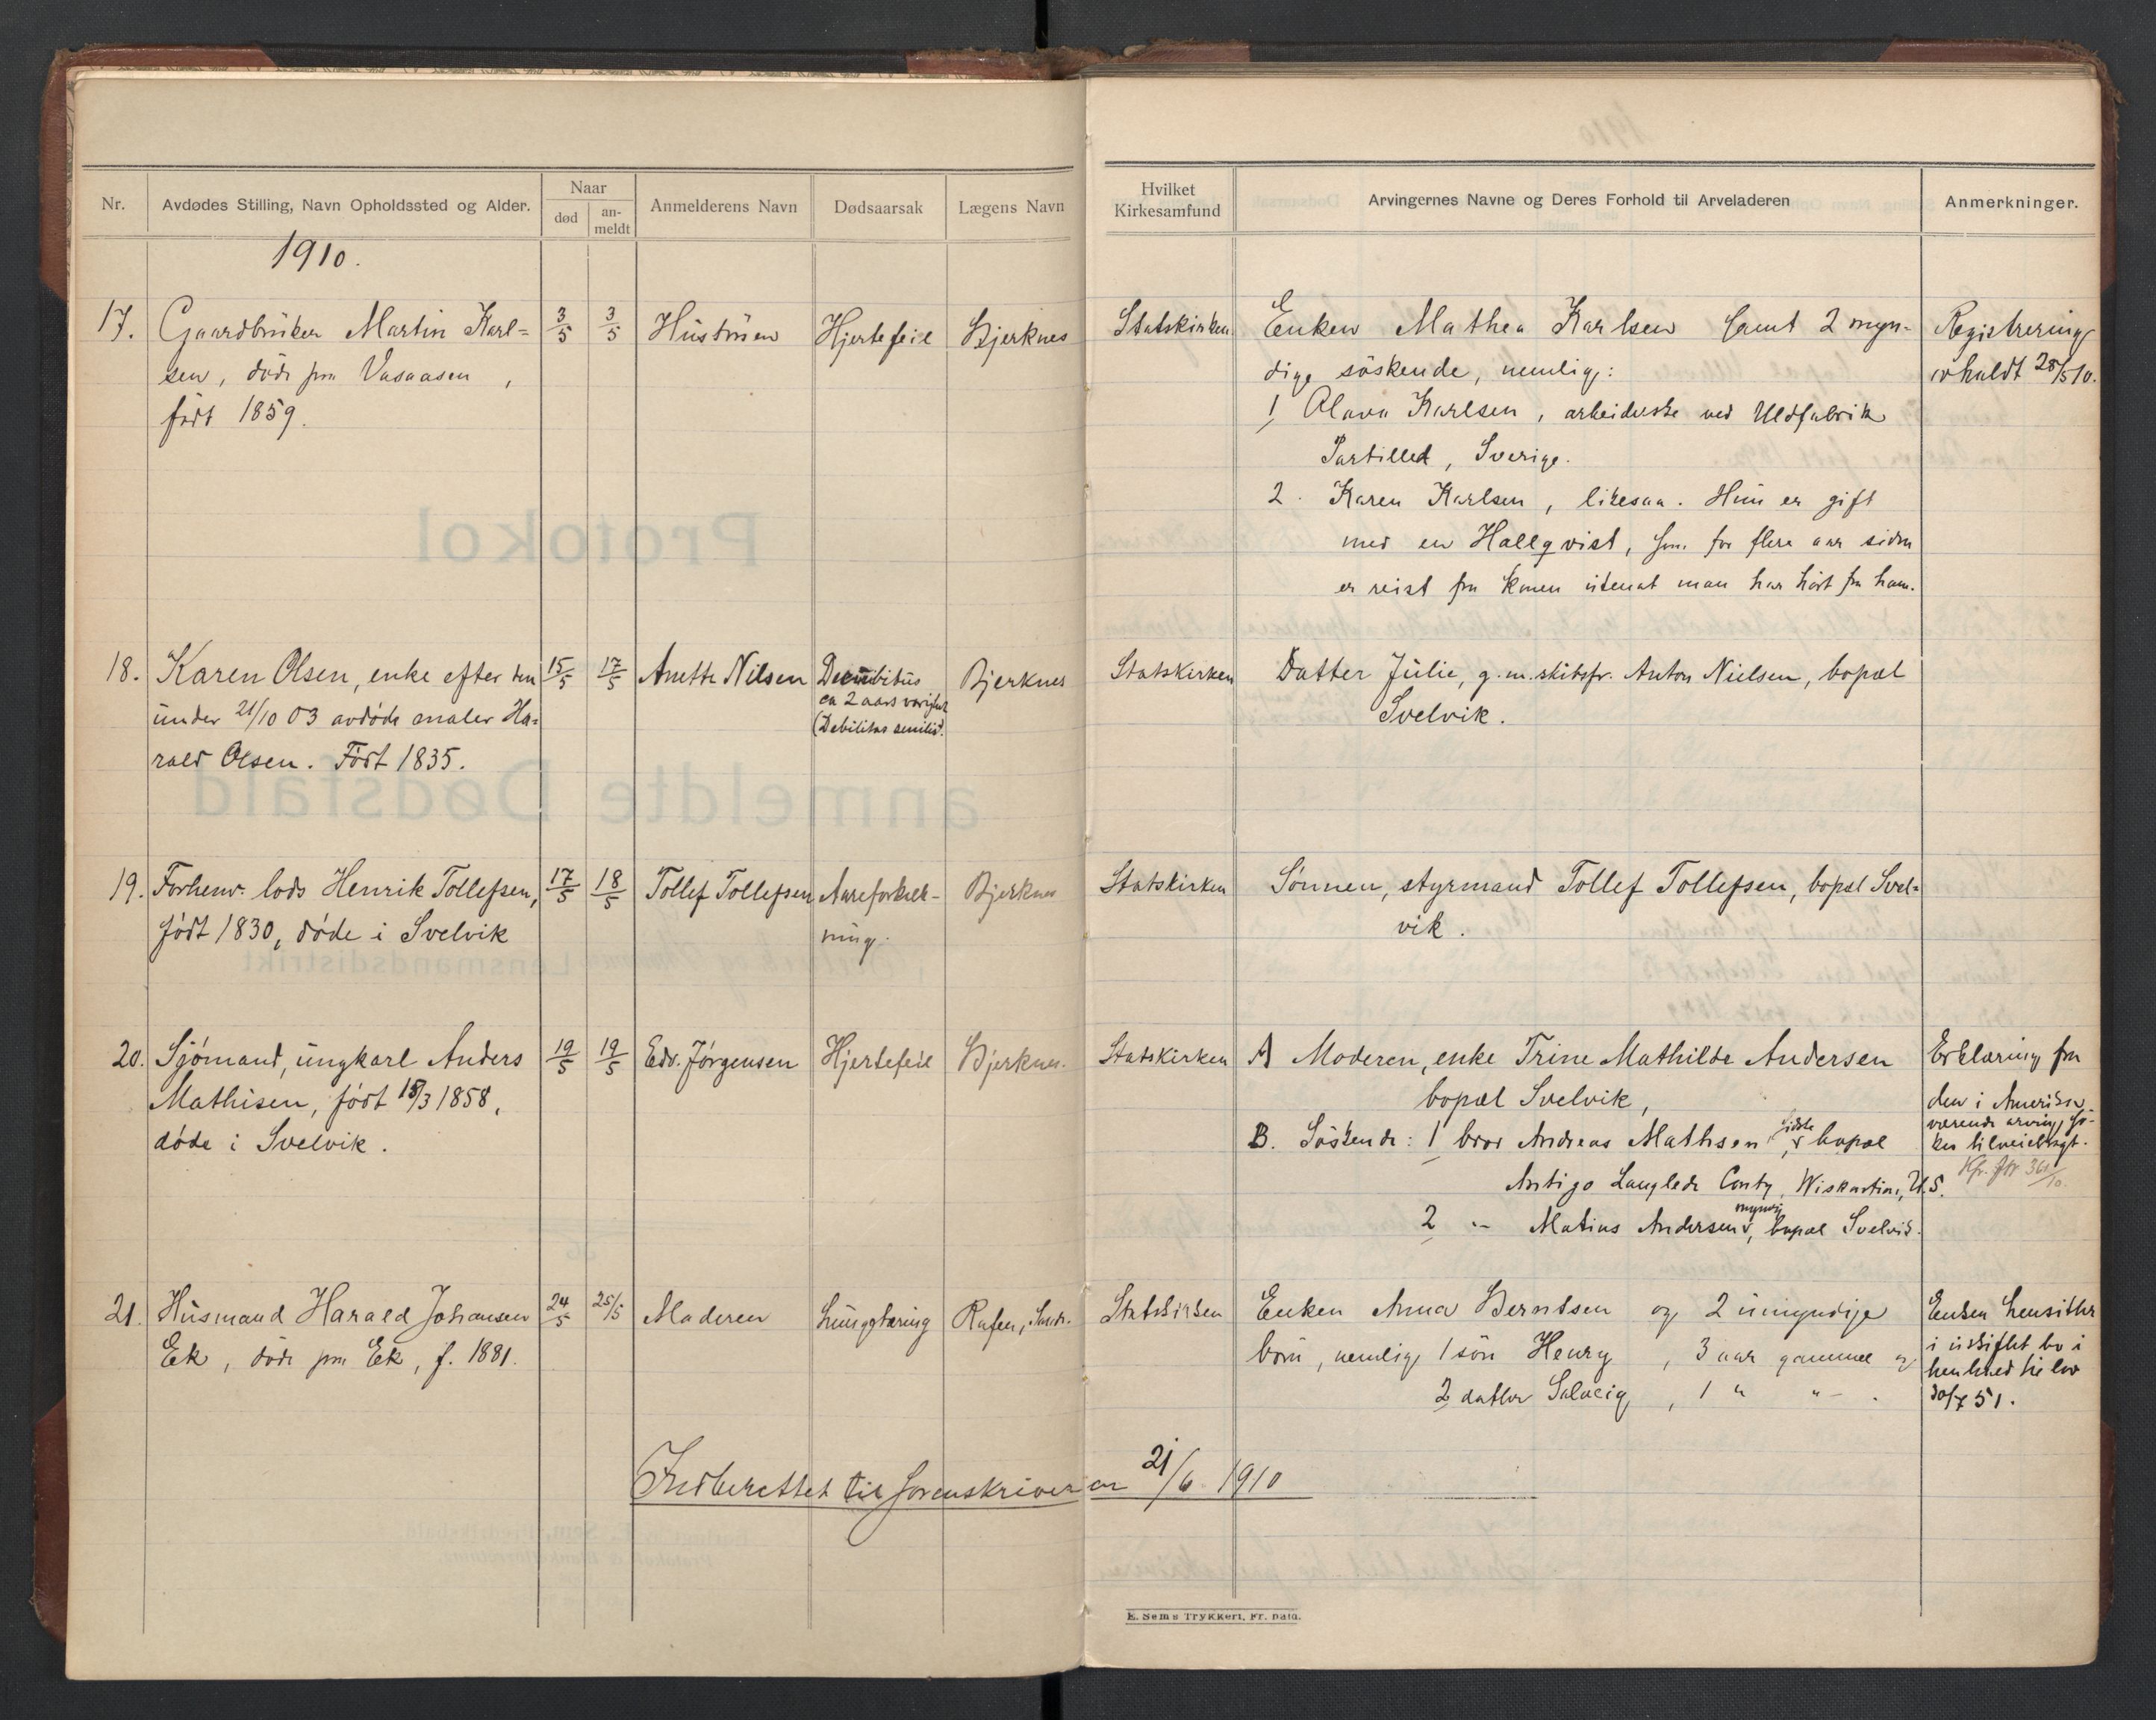 Nr.
Avdødes Stilling, Navn Opholdssted og Alder.
Naar
død
an-
meldt
Anmelderens Navn
Dødsaarsak
Lægens Navn
Hvilket
Kirkesamfund
Arvingernes Navne og Deres Forhold til Arveladeren
Anmerkninger.
1910.
17. Gaardbruker Martin Karl-
sen, døde paa Vasaasen,
født 1859.
3/5
3/5
Hustruen
Hjertefeil
Bjerknes
Statskirken
Enken Mathea Karlsen samt 2 myn-
dige søskende, nemlig:
1 Olava Karlsen, arbeiderske ved Uldfabrik
Partilled, Sverige.
2. Karen Karlsen, likesaa. Hun er gift
med en Hallqvist, som for flere aar siden
er reist fra konen utenat man har hørt fra ham.
Registrering
avholdt 28/5 10.
18. Karen Olsen, enke efter den
under 21/10 03 avdøde maler Ha-
rald Olsen. Født 1835.
15/5
17/5
Anette Nilsen
Decubitus
ca 2 aars varighet
(Debilitas senilis).
Bjerknes
Statskirken
Datter Julie, g. m. skibsfr. Anton Nielsen, bopæl
Svelvik.
19. Forhenv. lods Henrik Tollefsen,
født 1830, døde i Svelvik
17/5
18/5
Tollef Tollefsen
Aareforkalk-
ning.
Bjerknes
Statskirken
Sønnen, styrmand Tollef Tollefsen, bopæl Svel-
vik.
20. Sjømand, ungkarl Anders
Mathisen, født 18/3 1858,
døde i Svelvik.
19/5
19/5
Edv. Jørgensen
Hjertefeil
Bjerknes.
Statskirken
A Moderen, enke Trine Mathilde Andersen
bopæl Svelvik,
B. Søskende: 1 bror Andreas Mathisen, sidste bopæl
Antigo Langlede Conty, Wiskontine, U.S.
2 " Matias Andersen, myndig, bopæl Svelvik.
Erklæring fra
den i Amerika
værende arving sø-
kes tilveiebragt.
21. Husmand Harald Johansen
Ek, døde paa Ek, f. 1881.
24/5
25/5
Moderen
Lungetæring
Rafen, Sande.
Statskirken
Enken Anna Berntsen og 2 umyndige
børn, nemlig 1 søn Henry, 3 aar gammel og
2 datter Solveig, 1 " " .
Enken hensitter
i uskiftet bo i
henhold til lov
30/7 51.
Indberettet til sorenskriveren 21/6 1910
E. Sem's Trykkeri, Fr. hald.